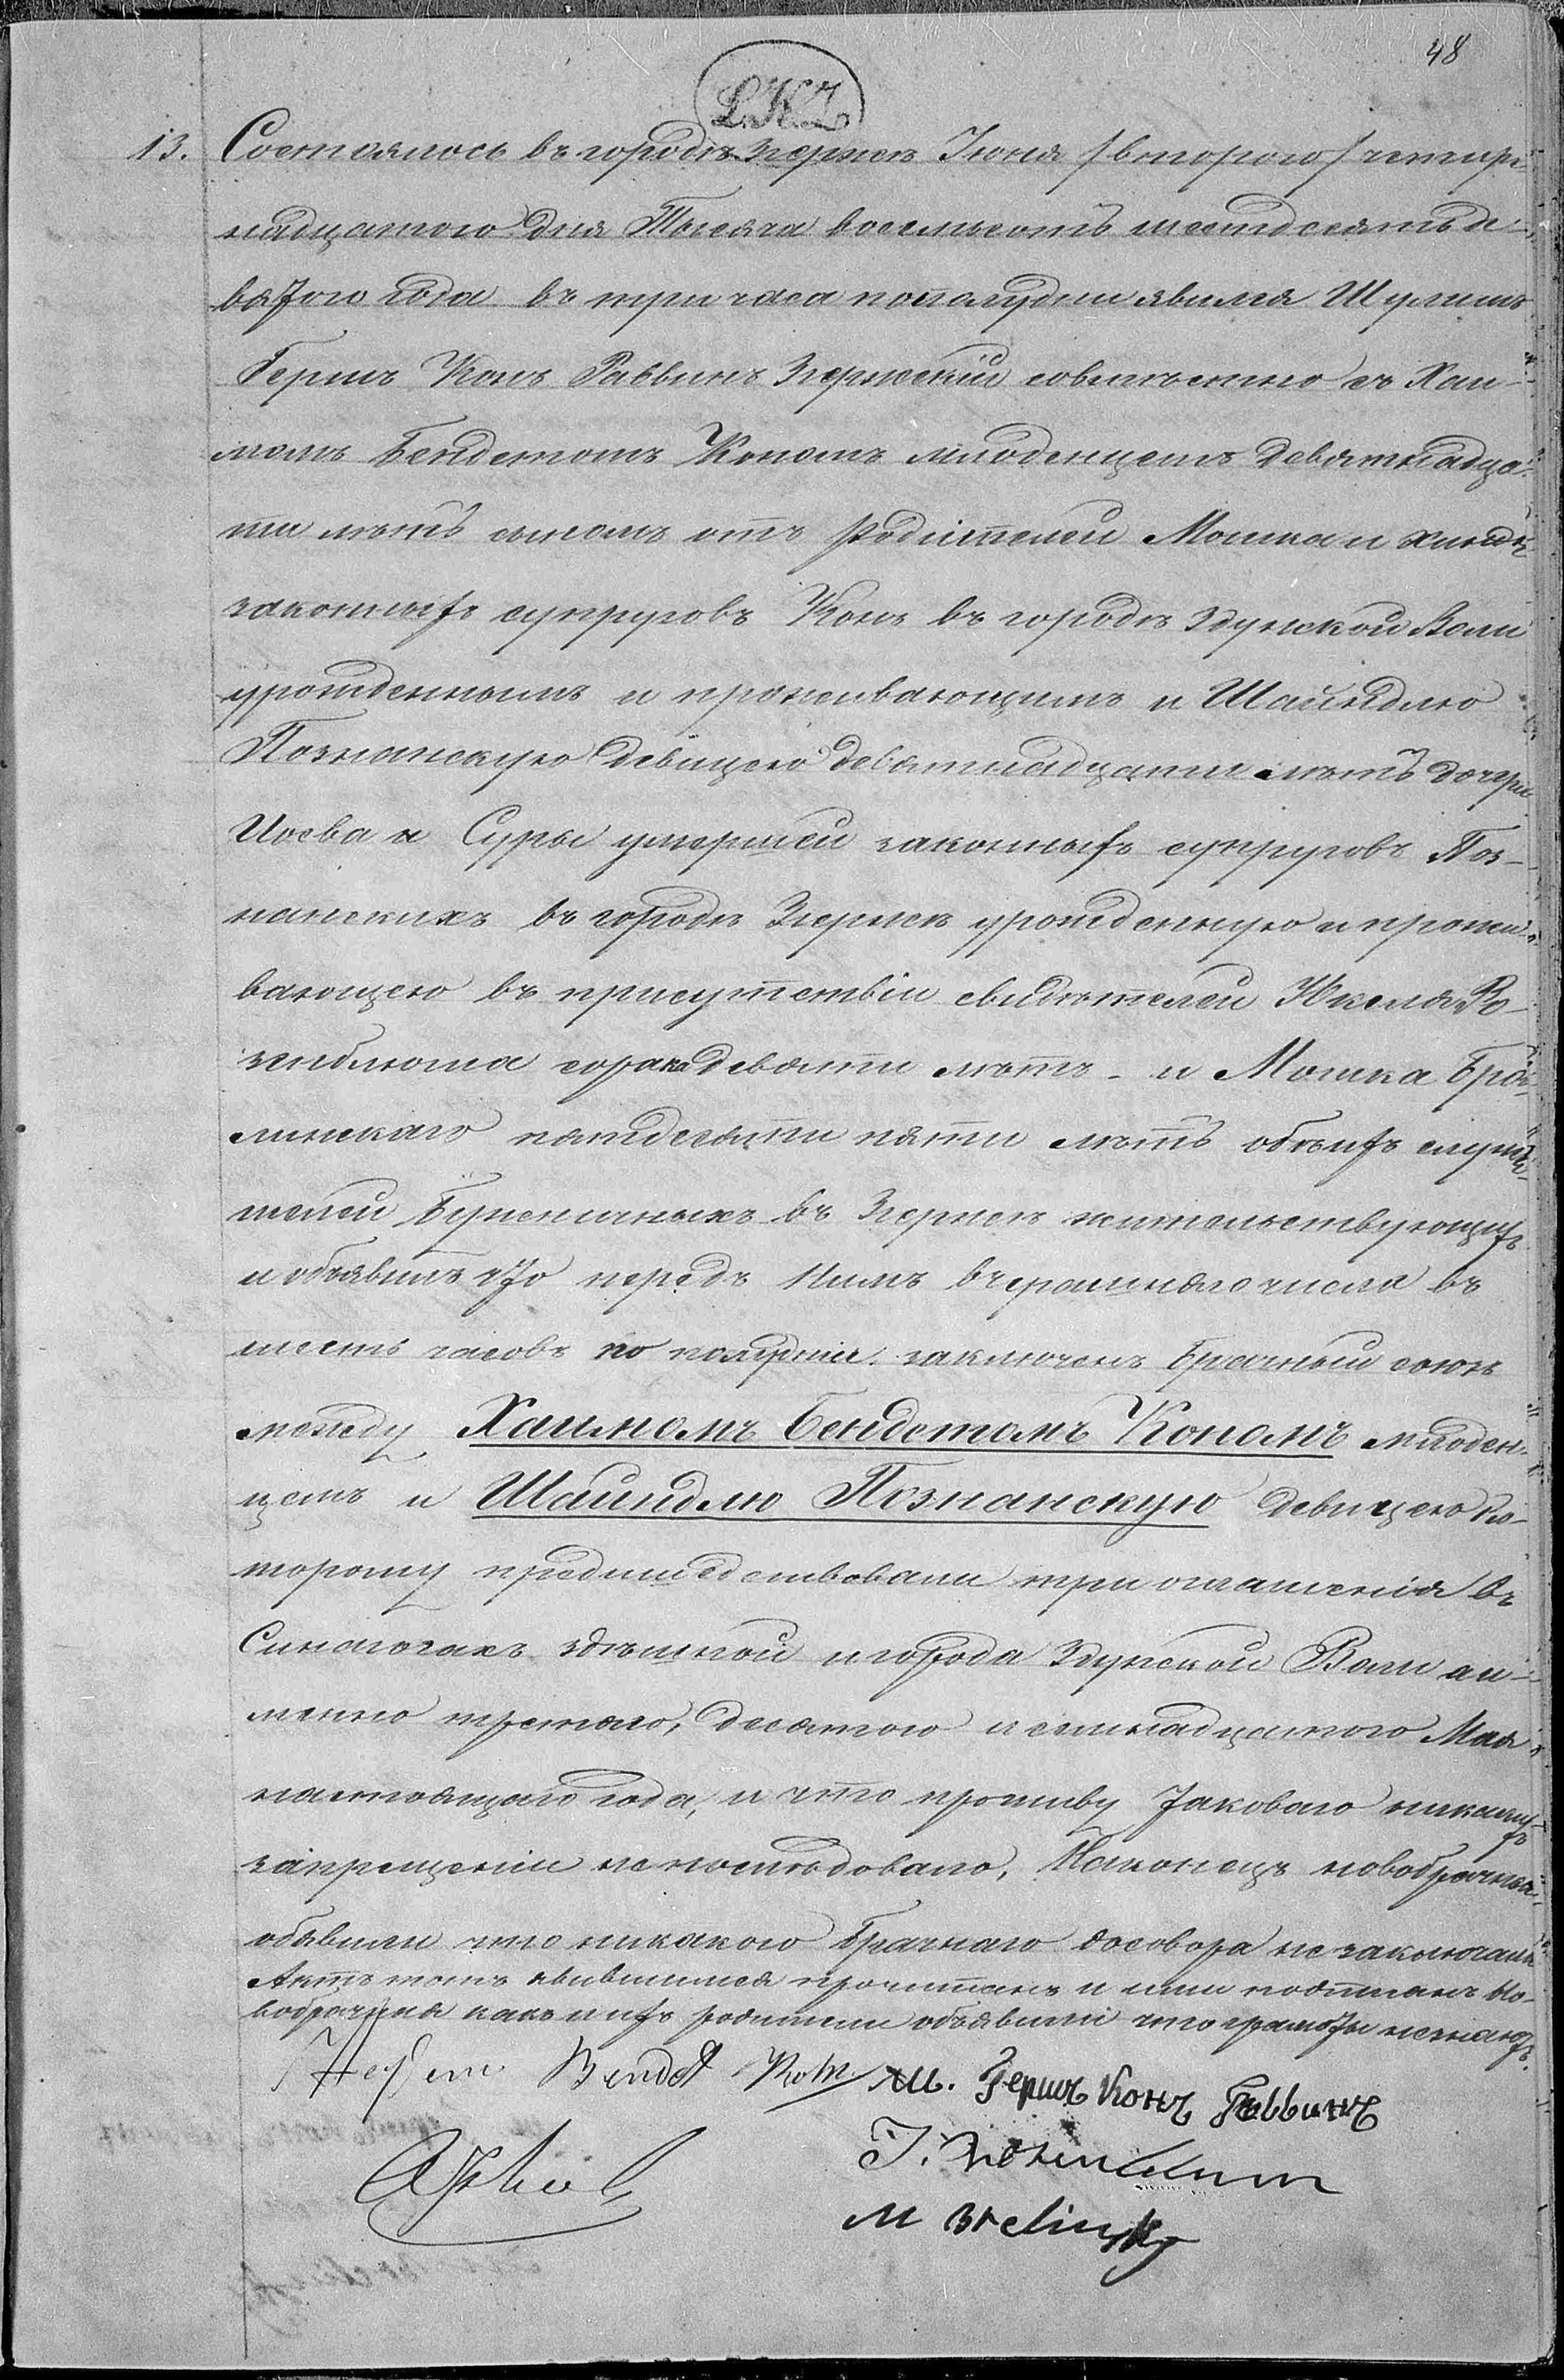 48
L.K.Z.
13. Состоялось въ городѣ Згержѣ Іюня /второго/ четыр-
надцатого дня Тысяча восемьсотъ шестдесятъ де-
вятого года въ три часа пополудни явился Шулимъ
Гершъ Конъ Раввинъ Згержскій совмѣстно съ Хаи-
момъ Бендетомъ Кономъ млоденцемъ девятнадца-
ти лѣтъ сыномъ отъ родителей Мошка и
законныхъ супруговъ Конъ въ городѣ Здунской Воли
урожденнымъ и проживающимъ и Шайндлю
Познанскую девицею девятнадцати лѣтъ дочери
Иосева и Суры умершей законныхъ супруговъ Поз-
нанскихъ въ городѣ Згержѣ урожденную и прожи-
вающею въ присутствіи свидѣтелей Юкеля Ро-
зенблюма сорокадевяти лѣтъ и Мошка Брже-
линскаго пятдесяти пяти лѣтъ обоихъ служи-
телей Буженичныхъ въ Згержѣ жительствующихъ
и объявилъ что передъ нимъ вчерашняго числа въ
шесть часовъ по полудни заключенъ брачный союзъ
между Хаимомъ Бендетомъ Кономъ млоден-
цемъ и Шайндлю Познанскую девицею Ко-
торому предшедствовали три оглашенія въ
Синагогахъ здѣшной и города Здунской Воли аи-
менно третяго, десятого и семнадцатого Мая
настоящаго года, и что противу таковаго никакихъ
запрещеніи непослѣдовало, Наконецъ новобрачныя
объявили что никакого брачнаго договора не заключали
Актъ тотъ явившимся прочитанъ и ими подписанъ Но-
вобрачная какъ и ихъ родители объявили что грамоты незнаютъ.
Bendet Kohn Ш. Гершъ Конъ Раввинъ
J. Rosenblum
M Brelinsky